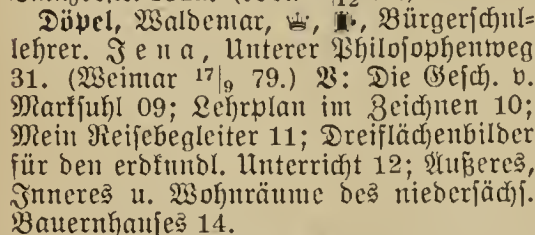 Döpel, Waldemar, Bürgerschul=
lehrer. Jena, Unterer Philosophenweg
31. (Weimar 17|9 79.) V: Die Gesch. v.
Marksuhl 09; Lehrplan im Zeichnen 10;
Mein Reisebegleiter 11; Dreiflächenbilder
für den erdkundl. Unterricht 12; Äußeres,
Inneres u. Wohnräume des niedersächs.
Bauernhauses 14.